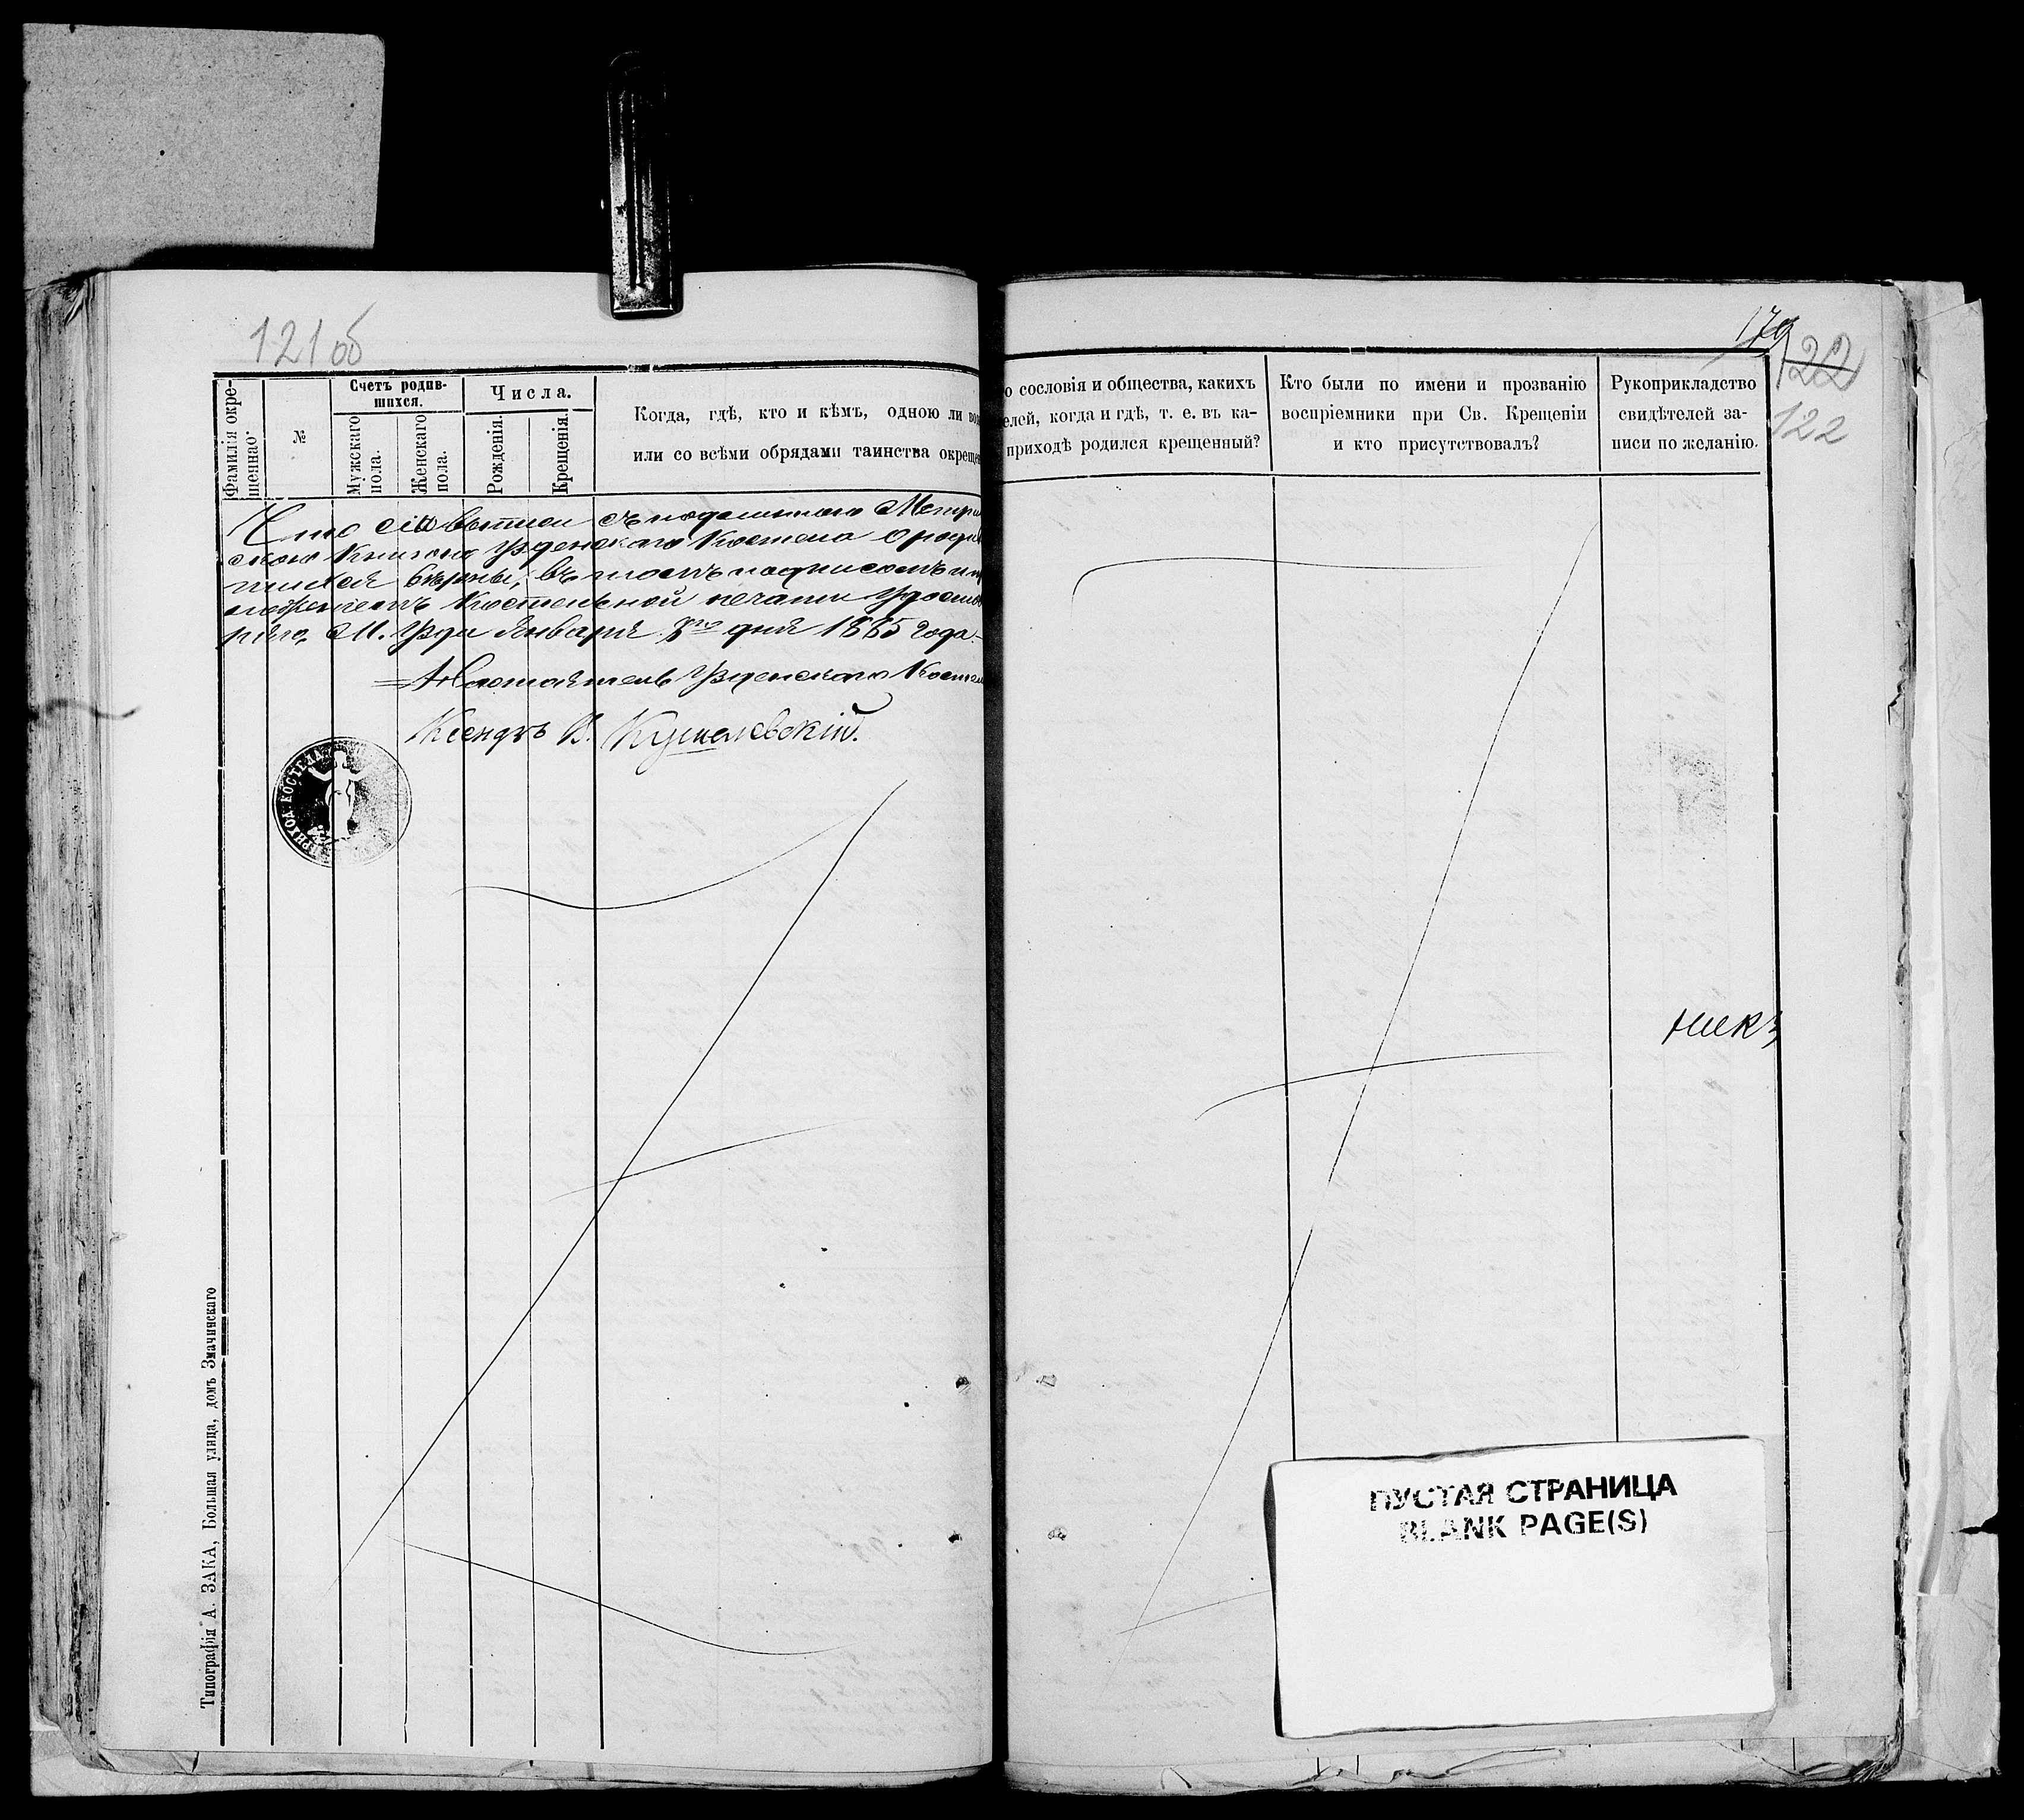 121об
Фамилія окре-
щеннаго.
№
Счетъ родив-
шихся.
Мужскаго
пола.
Женскаго
пола.
Числа.
Рожденія.
Крещенія.
Когда, гдѣ, кто и кѣмъ, одною ли
или со всѣми обрядами таинства окреще
Что сіи выписи съ подлинною Метри
скою Книгою Узденскаго Костела о роди
шихся вѣрны, въ томъ подписомъ и
Костельной печати удостов
ряю, М. Узда Января дня 1885 года.
Настоятель Узденскаго Костел
Ксендзъ В. Кушелевскій.
ПРИХОД. КОСТЕЛА
Типографія А. ЗАКА, Большая улица, домъ Значинскаго
179
122
122
о сословія и общества, какихъ
елей, когда и гдѣ, т. е. въ ка-
приходѣ родился крещенный?
Кто были по имени и прозванію
воспріемники при Св. Крещеніи
и кто присутствовалъ?
Рукоприкладство
свидѣтелей за-
писи по желанію.
никъ
ПУСТАЯ СТРАНИЦА
BLANK PAGE(S)